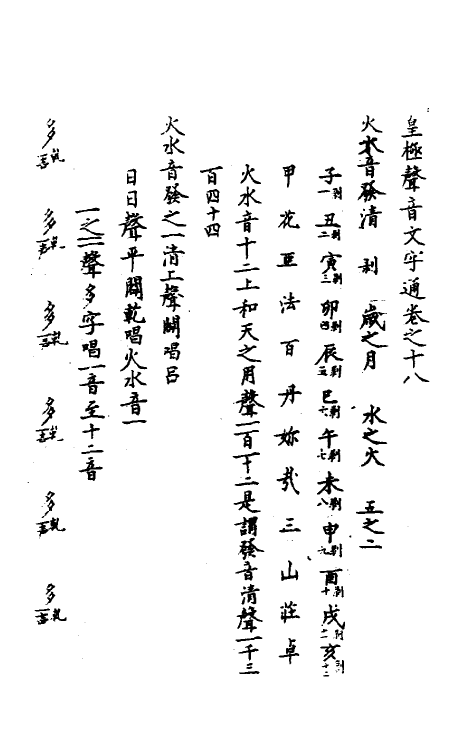 皇極聲音文字通卷之十八
火水音發清 剥 歲之月 水之火 五之二
子一剥 丑二剥 寅三剥 卯四剥 辰五剥 巳六剥 午七剥 未八剥 申九剥 酉十剥 戌十一剥 亥十二剥
甲花亞法百丹妳㢤三山莊卓
火水音十二上和天之用聲一百一十二是謂發音清聲一千三
百四十四
火水音發之一清上聲闢唱呂
日日聲平闢乾唱火水音一
一之一聲多字唱一音至十二音
多 多 多 多 多 多